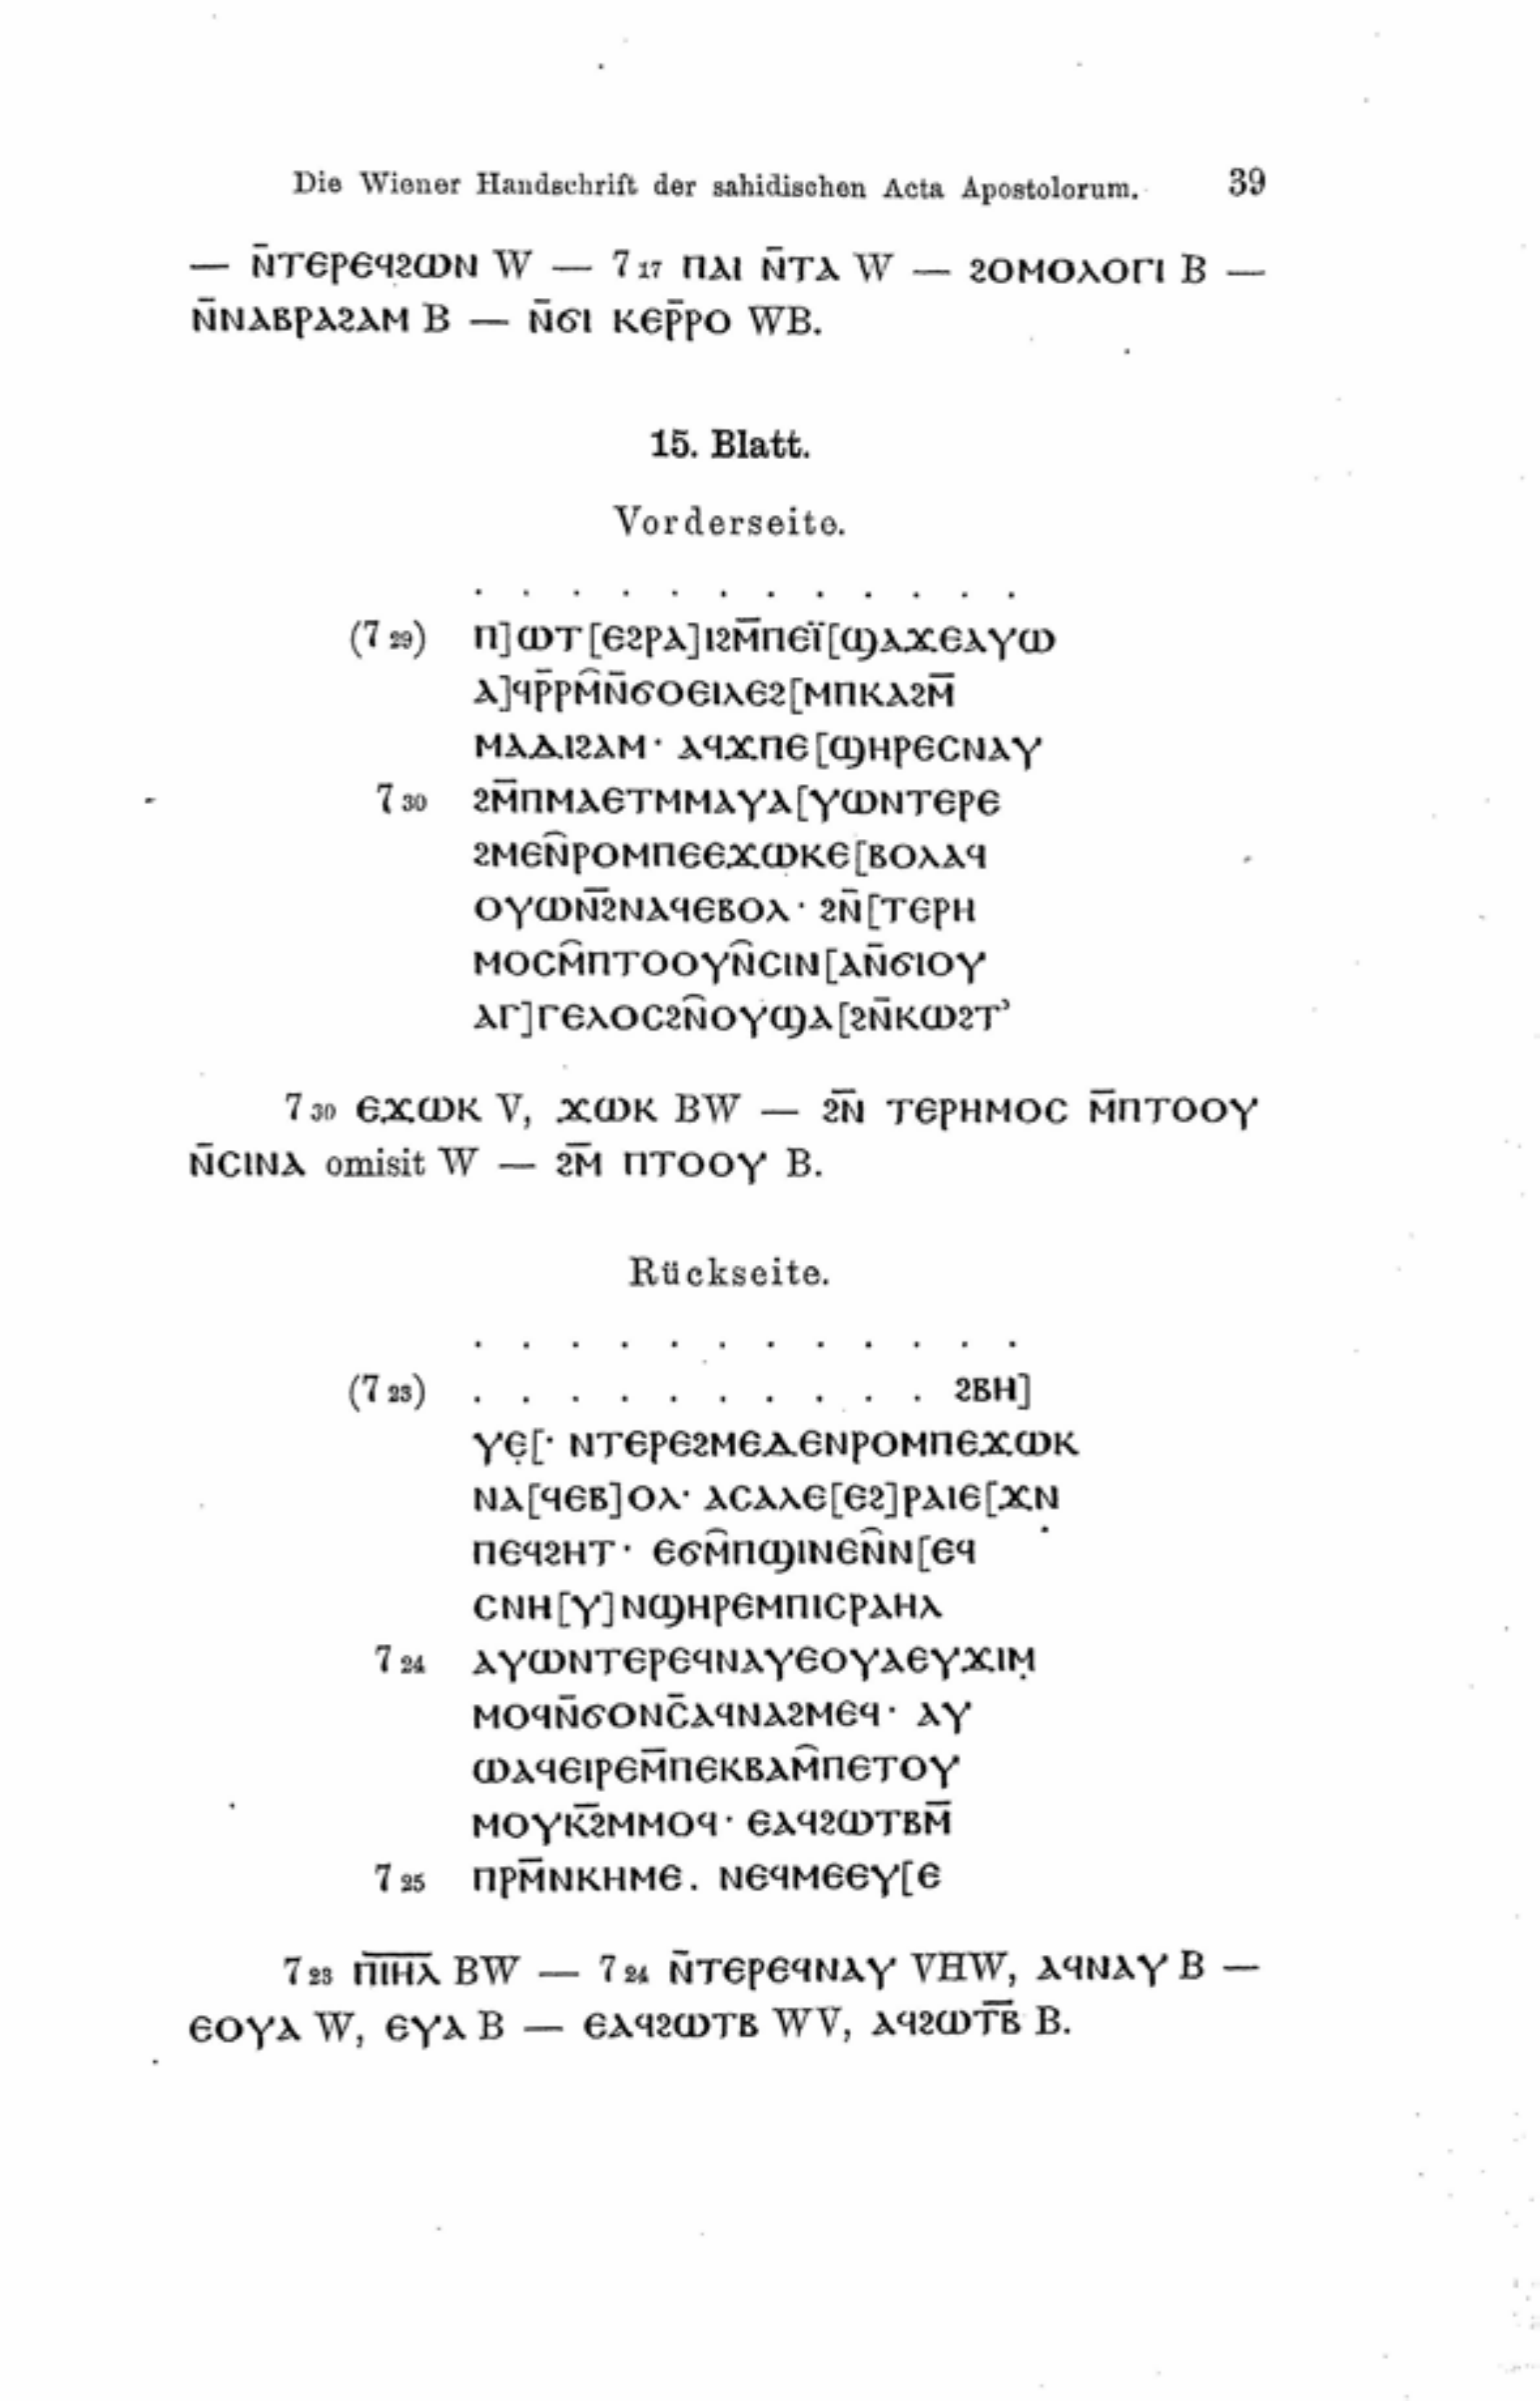 Die Wiener Handschrift der sahidischen Acta Apostolorum. 39
— ⲛ̄ⲧⲉⲣⲉϥϩⲱⲛ W — 7 17 ⲡⲁⲓ ⲛ̄ⲧⲁ W — ϩⲟⲙⲟⲗⲟⲅⲓ B —
ⲛ̄ⲛⲁⲃⲣⲁϩⲁⲙ B — ⲛ̄ϭⲓ ⲕⲉⲣ̄ⲣⲟ WB.
15. Blatt.
Vorderseite.
. . . . . . . . . . . .
(7 29) ⲡ]ⲱⲧ[ⲉϩⲣⲁ]ⲓϩⲙ̄ⲡⲉⲓ̈[ϣⲁϫⲉⲁⲩⲱ
ⲁ]ϥⲣ̄ⲣⲙ̂ⲛ̄ϭⲟⲉⲓⲗⲉϩ[ⲙⲡⲕⲁϩⲙ̄
ⲙⲁⲇⲓϩⲁⲙ· ⲁϥϫⲡⲉ[ϣⲏⲣⲉⲥⲛⲁⲩ
7 30 ϩⲙ̄ⲡⲙⲁⲉⲧⲙⲙⲁⲩⲁ[ⲩⲱⲛⲧⲉⲣⲉ
ϩⲙⲉⲛ̂ⲣⲟⲙⲡⲉⲉϫⲱⲕⲉ[ⲃⲟⲗⲁϥ
ⲟⲩⲱⲛ̄ϩⲛⲁϥⲉⲃⲟⲗ· ϩⲛ̄[ⲧⲉⲣⲏ
ⲙⲟⲥⲙ̂ⲡⲧⲟⲟⲩⲛ̂ⲥⲓⲛ[ⲁⲛ̄ϭⲓⲟⲩ
ⲁⲅ]ⲅⲉⲗⲟⲥϩⲛ̂ⲟⲩϣⲁ[ϩⲛ̄ⲕⲱϩⲧ’
7 30 ⲉϫⲱⲕ V, ϫⲱⲕ BW — ϩⲛ̄ ⲧⲉⲣⲏⲙⲟⲥ ⲙ̄ⲡⲧⲟⲟⲩ
ⲛ̄ⲥⲓⲛⲁ omisit W — ϩⲙ̄ ⲡⲧⲟⲟⲩ B.
Rückseite.
. . . . . . . . . . . .
(7 23) . . . . . . . . . . ϩⲃⲏ]
ⲩⲉ̣[· ⲛⲧⲉⲣⲉϩⲙⲉⲇⲉⲛⲣⲟⲙⲡⲉϫⲱⲕ
ⲛⲁ[ϥⲉⲃ]ⲟⲗ· ⲁⲥⲁⲗⲉ[ⲉϩ]ⲣⲁⲓⲉ[ϫⲛ
ⲡⲉϥϩⲏⲧ· ⲉϭⲙ̂ⲡϣⲓⲛⲉⲛ̂ⲛ[ⲉϥ
ⲥⲛⲏ[ⲩ]ⲛϣⲏⲣⲉⲙⲡⲓⲥⲣⲁⲏⲗ
7 24 ⲁⲩⲱⲛⲧⲉⲣⲉϥⲛⲁⲩⲉⲟⲩⲁⲉⲩϫⲓⲙ̣
ⲙⲟϥⲛ̄ϭⲟⲛⲥ̄ⲁϥⲛⲁϩⲙⲉϥ· ⲁⲩ
ⲱⲁϥⲉⲓⲣⲉⲙ̄ⲡⲉⲕⲃⲁⲙ̂ⲡⲉⲧⲟⲩ
ⲙⲟⲩⲕ̄ϩⲙⲙⲟϥ· ⲉⲁϥϩⲱⲧⲃⲙ̄
7 25 ⲡⲣⲙ̄ⲛⲕⲏⲙⲉ. ⲛⲉϥⲙⲉⲉⲩ[ⲉ
7 23 ⲡ̅ⲓ̅ⲏ̅ⲗ̅ BW — 7 24 ⲛ̄ⲧⲉⲣⲉϥⲛⲁⲩ VHW, ⲁϥⲛⲁⲩ B —
ⲉⲟⲩⲁ W, ⲉⲩⲁ B — ⲉⲁϥϩⲱⲧⲃ WV, ⲁϥϩⲱⲧ̅ⲃ̅ B.